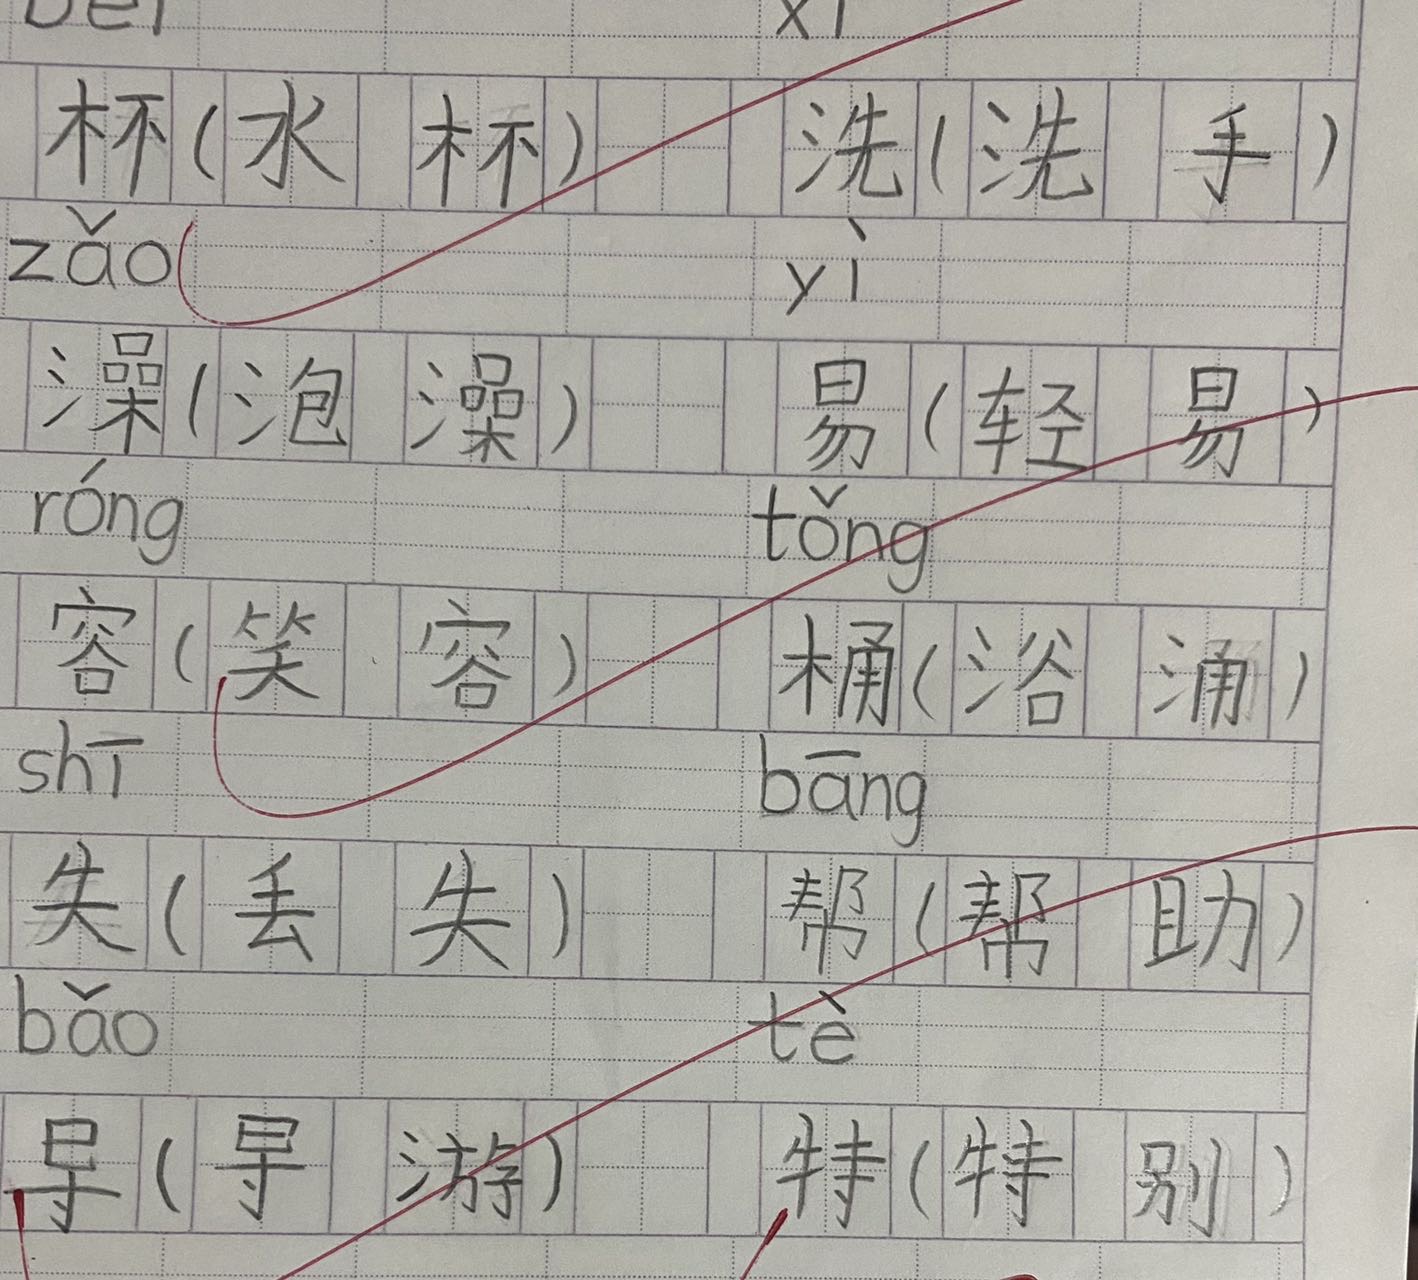 bei xi
杯(水杯) 洗(洗手)
zǎo yì
澡(泡澡) 易(轻易)
róng tǒng
容(笑容) 桶(浴涌)
shī bāng
失(丢失) 帮(帮助)
bǎo tè
导(导游) 特(特别)